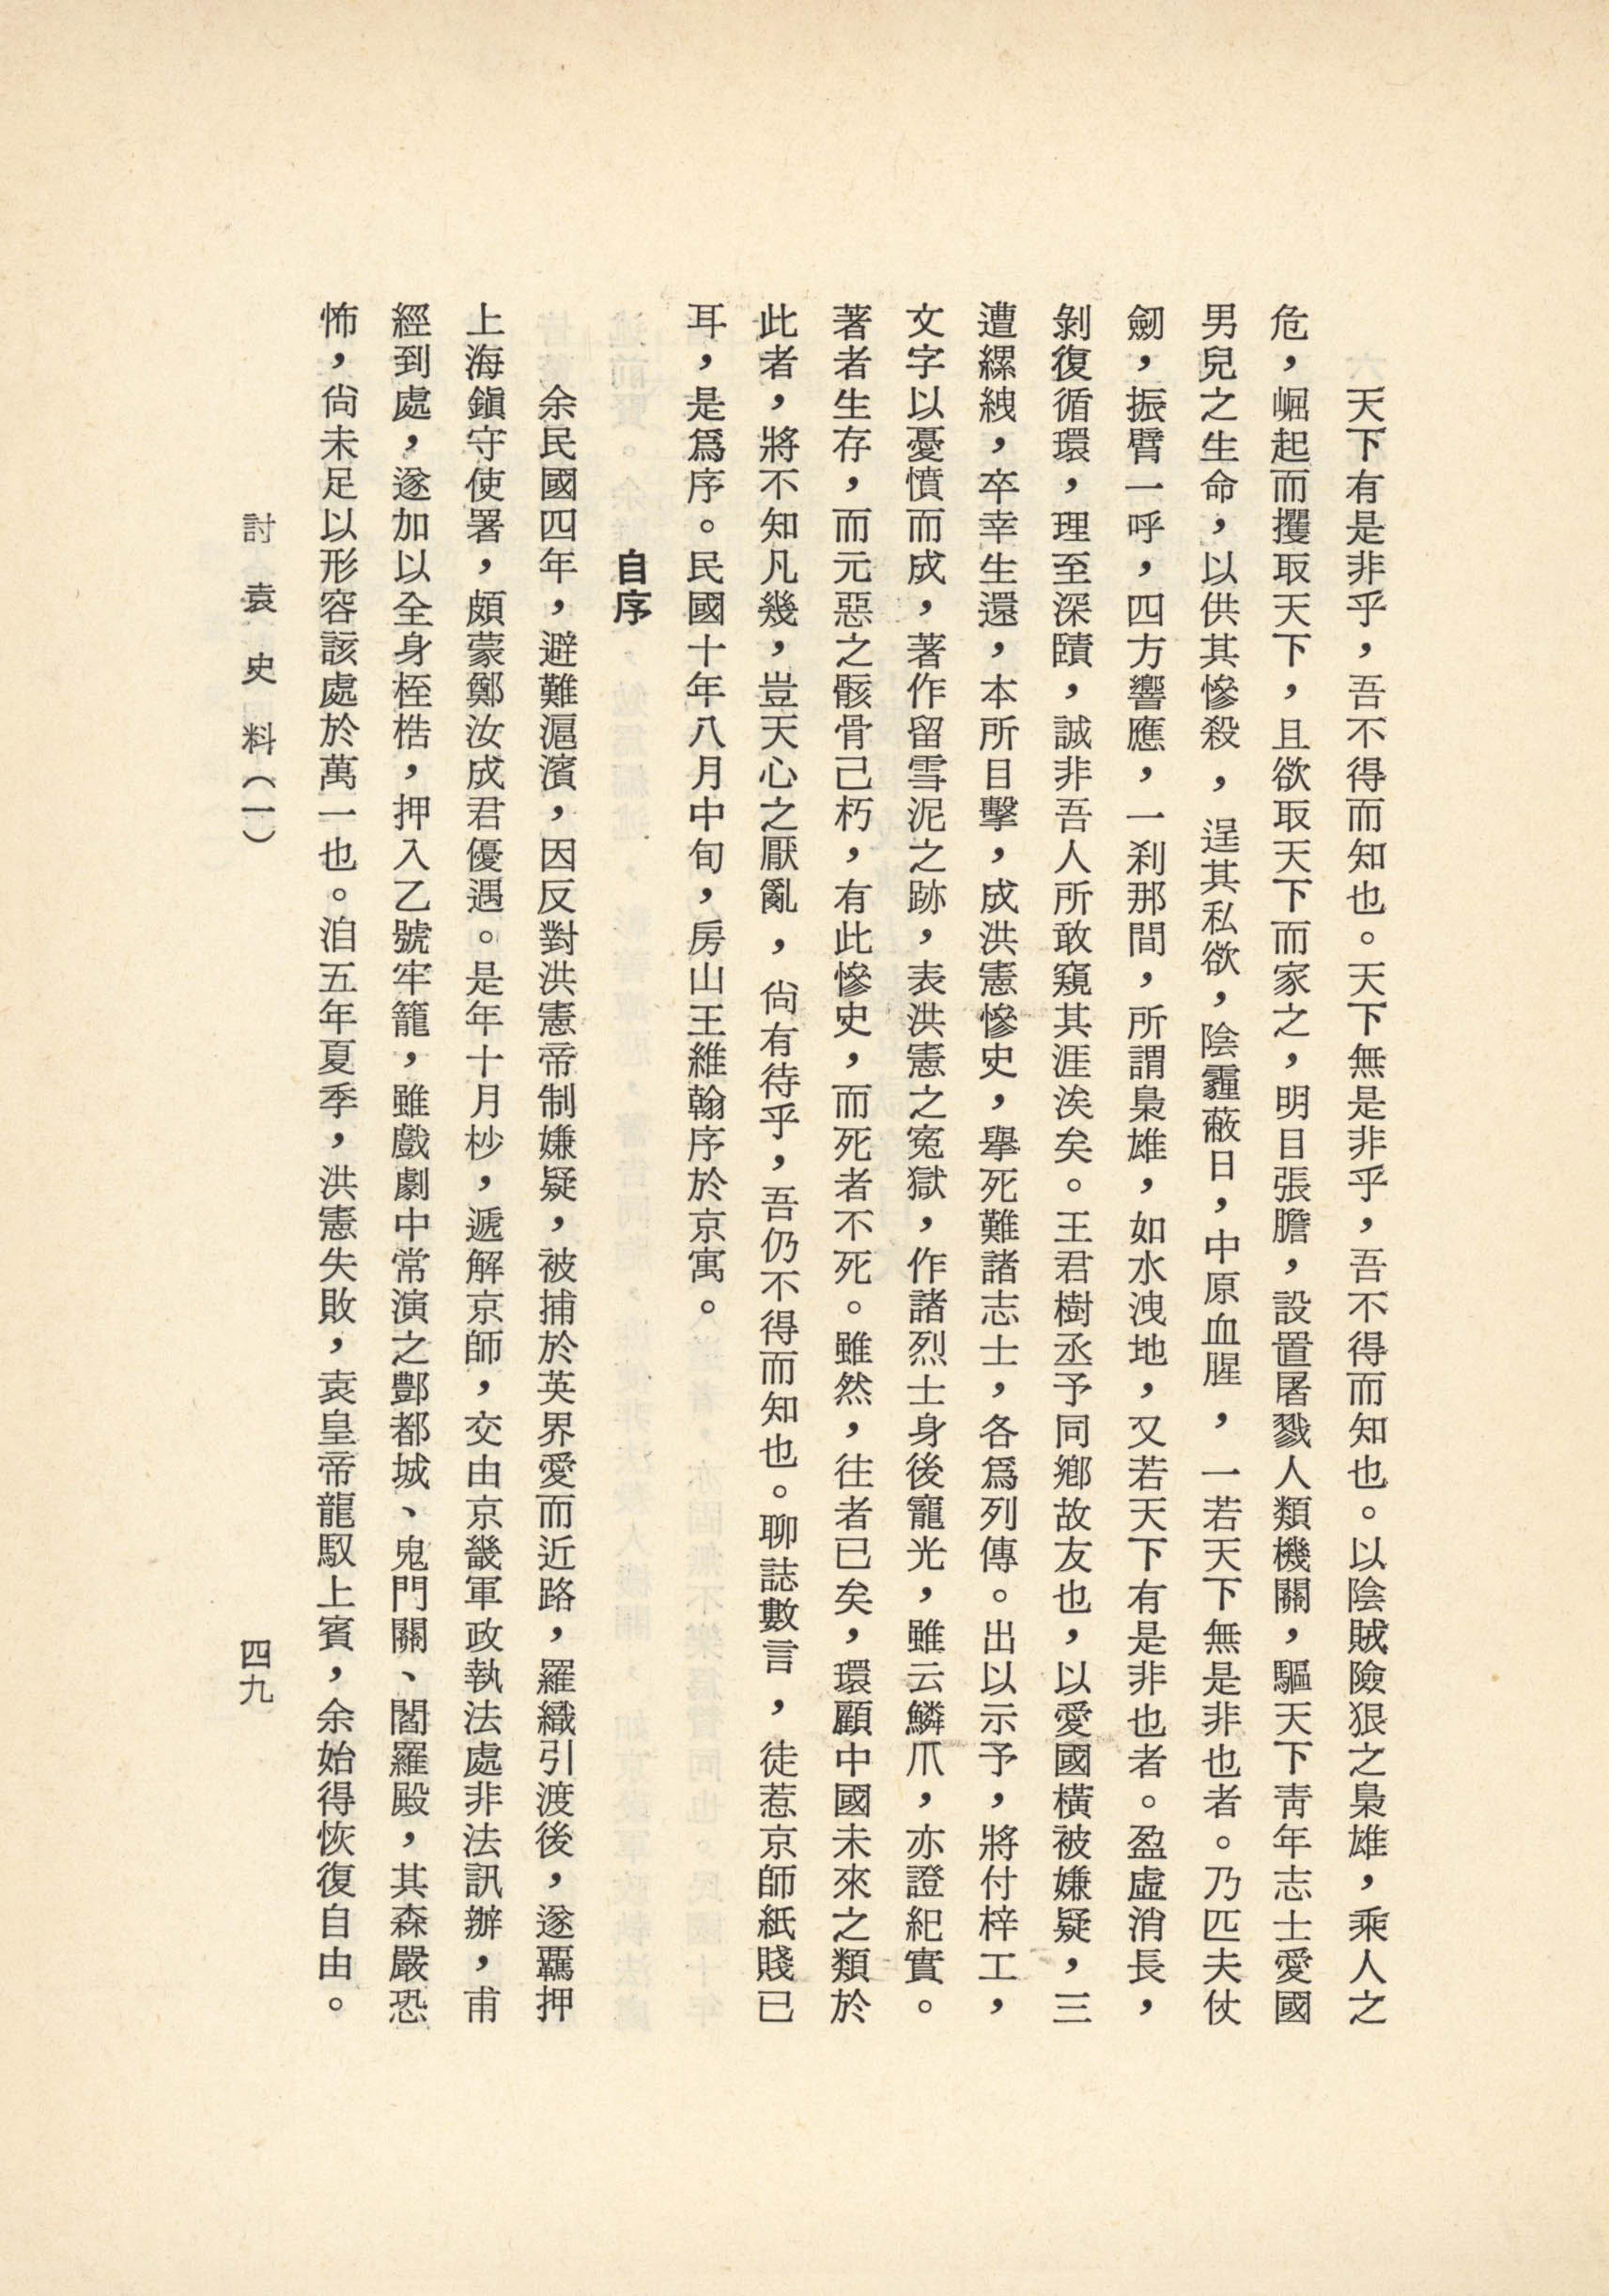 天下有是非乎，吾不得而知也。天下無是非乎，吾不得而知也。以陰賊險狠之梟雄，乘人之
危，崛起而攫取天下，且欲取天下而家之，明目張膽，設置屠戮人類機關，驅天下靑年志士愛國
男兒之生命，以供其慘殺，逞其私欲，陰霾蔽日，中原血腥，一若天下無是非也者。乃匹夫仗
劒，振臂一呼，四方響應，一刹那間，所謂梟雄，如水洩地，又若天下有是非也者。盈虛消長，
剝復循環，理至深賾，誠非吾人所敢窺其涯涘矣。王君樹丞予同鄉故友也，以愛國橫被嫌疑，三
遭縲絏，卒幸生還，本所目擊，成洪憲慘史，擧死難諸志士，各爲列傳。出以示予，將付梓工，
文字以憂憤而成，著作留雪泥之跡，表洪憲之寃獄，作諸烈士身後寵光，雖云鱗爪，亦證紀實。
著者生存，而元惡之骸骨已朽，有此慘史，而死者不死。雖然，往者已矣，環顧中國未來之類於
此者，將不知凡幾，豈天心之厭亂，尙有待乎，吾仍不得而知也。聊誌數言，徒惹京師紙賤已
耳，是爲序。民國十年八月中旬，房山王維翰序於京寓。
自序
余民國四年，避難滬濱，因反對洪憲帝制嫌疑，被捕於英界愛而近路，羅織引渡後，遂羈押
上海鎭守使署，頗蒙鄭汝成君優遇。是年十月杪，遞解京師，交由京畿軍政執法處非法訊辦，甫
經到處，遂加以全身桎梏，押入乙號牢籠，雖戲劇中常演之酆都城、鬼門關、閻羅殿，其森嚴恐
怖，尙未足以形容該處於萬一也。洎五年夏季，洪憲失敗，袁皇帝龍馭上賓，余始得恢復自由。
討袁史料（一）
四九